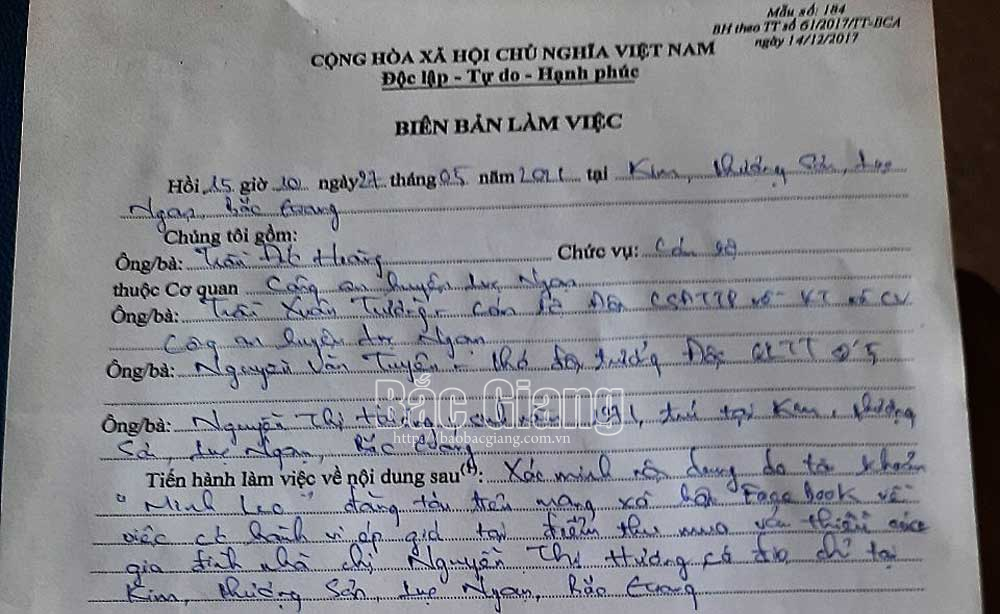 Mẫu số: 184
BH theo TT số 61/2017/TT-BCA
ngày 14/12/2017
CỘNG HÒA XÃ HỘI CHỦ NGHĨA VIỆT NAM
Độc lập - Tự do - Hạnh phúc
BIÊN BẢN LÀM VIỆC
Hồi 15 giờ 20 ngày 27 tháng 05 năm 2021 tại Kim, Phượng Sơn, Lục
Ngạn, Bắc Giang
Chúng tôi gồm:
Ông/bà: Trần Hoàng Chức vụ: Cán bộ
thuộc Cơ quan Công an huyện Lục Ngạn
Ông/bà: Trần Xuân Trường - Cán bộ Đội CSĐTTP về KT và CV
Công an huyện Lục Ngạn
Ông/bà: Nguyễn Văn Tuyên - Phó đội trưởng Đội QLTT số 5
Bắc Giang
Ông/bà: Nguyễn Thị Hương, sinh năm 1991, trú tại Kim, Phượng
http://baobacgiang.com.vn
Sơn, Lục Ngạn, Bắc Giang
Tiến hành làm việc về nội dung sau(1): Xác minh nội dung do tài khoản
"Minh Leo" đăng tải trên mạng xã hội FaceBook về
việc có hành vi ép giá tại điểm thu mua vải thiều của
gia đình nhà chị Nguyễn Thị Hương có địa chỉ tại
Kim, Phượng Sơn, Lục Ngạn, Bắc Giang